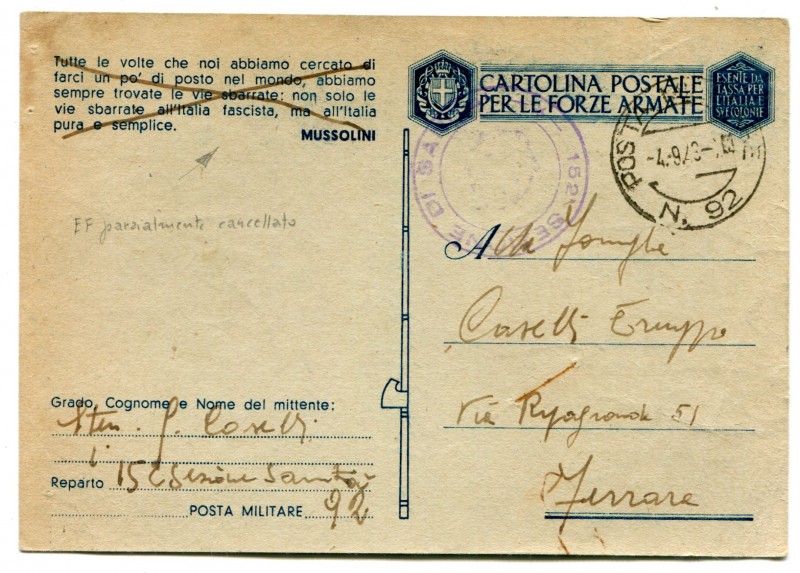 Tutte le volte che noi abbiamo cercato di
farci un po' di posto nel mondo, abbiamo
sempre trovate le vie sbarrate: non solo le
vie sbarrate all'Italia fascista, ma all'Italia
pura e semplice.
MUSSOLINI
EF parzialmente cancellato
CARTOLINA POSTALE
PER LE FORZE ARMATE
ESENTE DA
TASSA PER
L'ITALIA E
SVE COLONIE
POSTA
-4.9.43-
N. 92
152ª SE NE DI SA
Alla Famiglia
Caselli
Via Ripagrande 51
Ferrara
Grado, Cognome e Nome del mittente:
Sten. G. Caselli
Reparto 152 Sezione Sanità
POSTA MILITARE 92